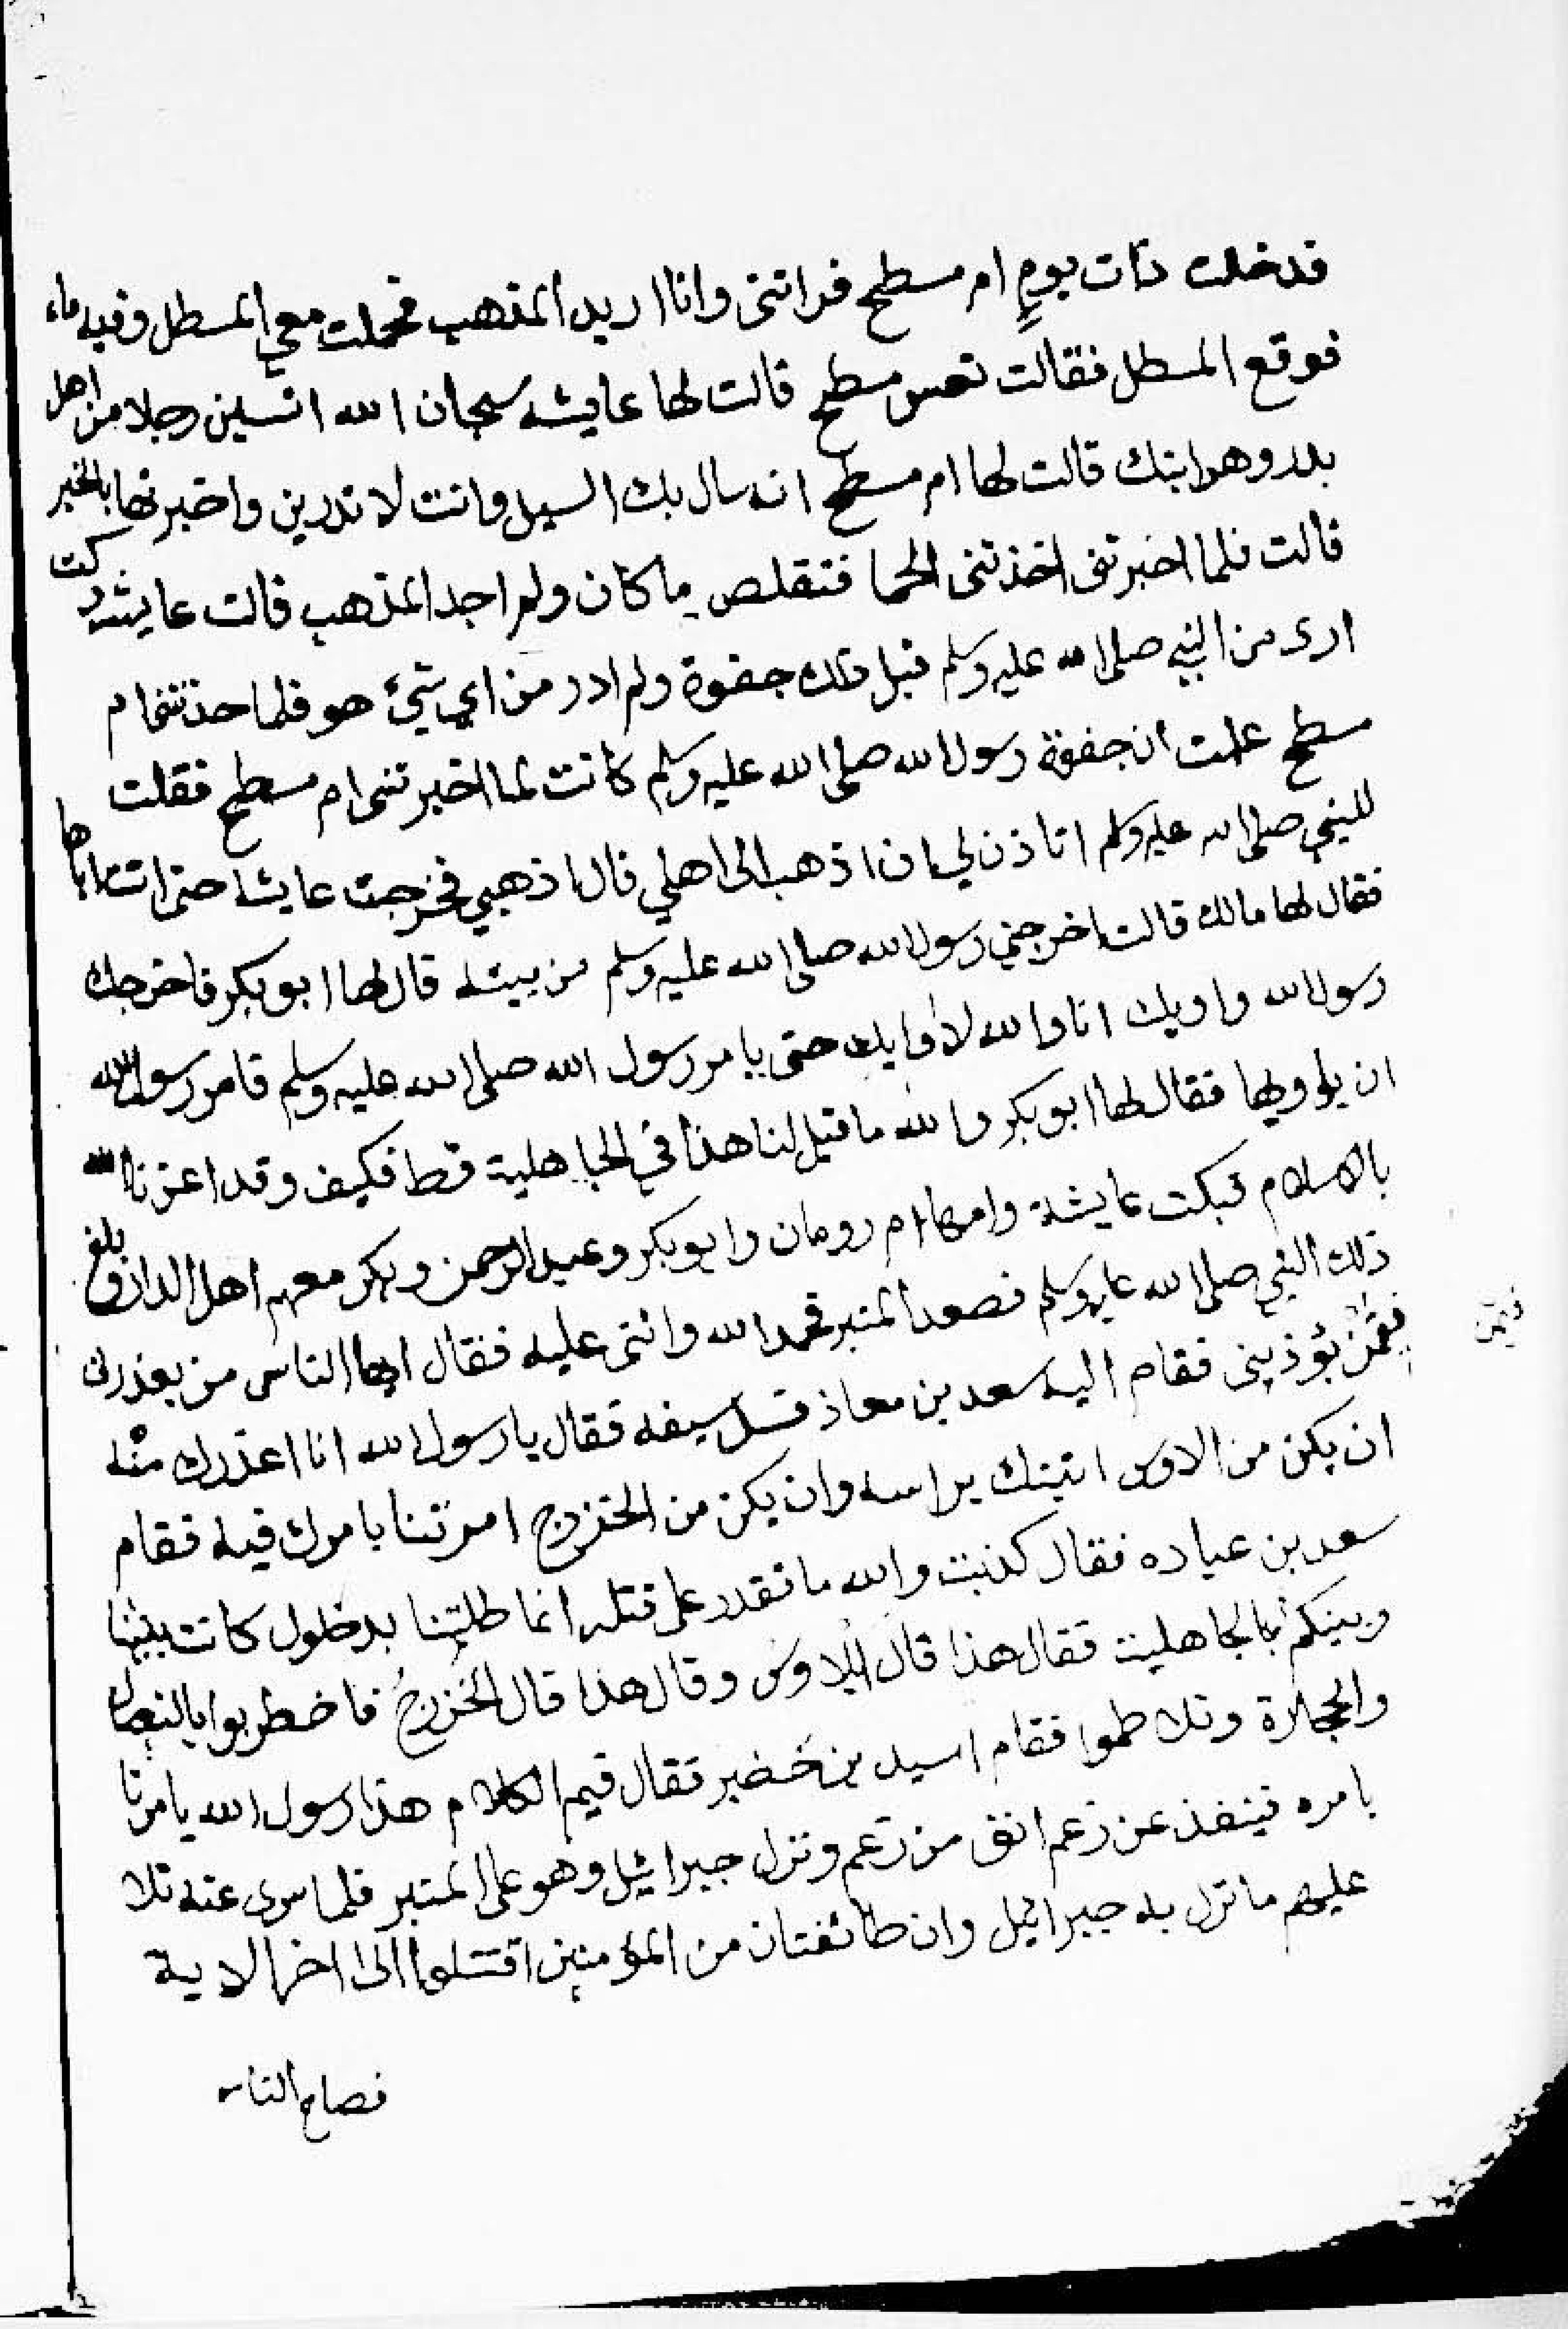 فدخلت ذات يومٍ ام مسطح فراتنى وانا اريد المذهب فحملت معي المسطل وفيه ماء
فوقع المسطل فقالت تعس مسطح قالت لها عايشه سبحان الله اتسبين رجلا من اهل
بدر وهو ابنك قالت لها ام مسطح انه سال بك السيل وانت لا تدرين واخبرتها بالخبر
قالت فلما اخبرتنى اخذتنى الحما فتقلص ما كان ولم اجد المذهب قالت عايشه وكنت
ارى من النبي صلى الله عليه وسلم قبل ذلك جفوة ولم ادر من اي شيء هو فلما حدثتنى ام
مسطح علمت ان جفوة رسول الله صلى الله عليه وسلم كانت لما اخبرتنى ام مسطح فقلت
للنبي صلى الله عليه وسلم اتاذن لي ان اذهب الى اهلي قال اذهبي فخرجت عايشه حتى اتت اباها
فقال لها مالك قالت اخرجني رسول الله صلى الله عليه وسلم من بيته قال لها ابو بكر فاخرجك
رسول الله واويك انا والله لا اوايك حتى يامر رسول الله صلى الله عليه وسلم فامر رسول الله
ان ياويها فقال لها ابو بكر والله ما قيل لنا هذا في الجاهلية قط فكيف وقد اعزنا الله
بالاسلام فبكت عايشة وامها ام رومان وابو بكر وعبد الرحمن وبكى معهم اهل الدار وبلغ
ذلك النبي صلى الله عليه وسلم فصعد المنبر فحمد الله واثنى عليه فقال ايها الناس من يعذرنى
فيمن يؤذينى فقام اليه سعد بن معاذ فسل سيفه فقال يا رسول الله انا اعذرك منه
فيمن
ان يكن من الاوس اتيتك براسه وان يكن من الخزرج امرتنا بامرك فيه فقام
سعد بن عباده فقال كذبت والله ما تقدر على قتله انما طلبتنا بدخول كانت بيننا
وبينكم بالجاهلية فقال هذا قال الاوس وقال هذا قال الخزرج فاضطربوا بالنعال
والحجارة وتلاطموا فقام اسيد بن خضير فقال فيم الكلام هذا رسول الله يامرنا
بامره فينفذ عن زعم انف من زعم ونزل جبرائيل وهو على المنبر فلما سرى عنه تلا
عليهم ما نزل به جبرائيل وان طائفتان من المؤمنين اقتتلوا الى اخر الاية
فصاح الناس